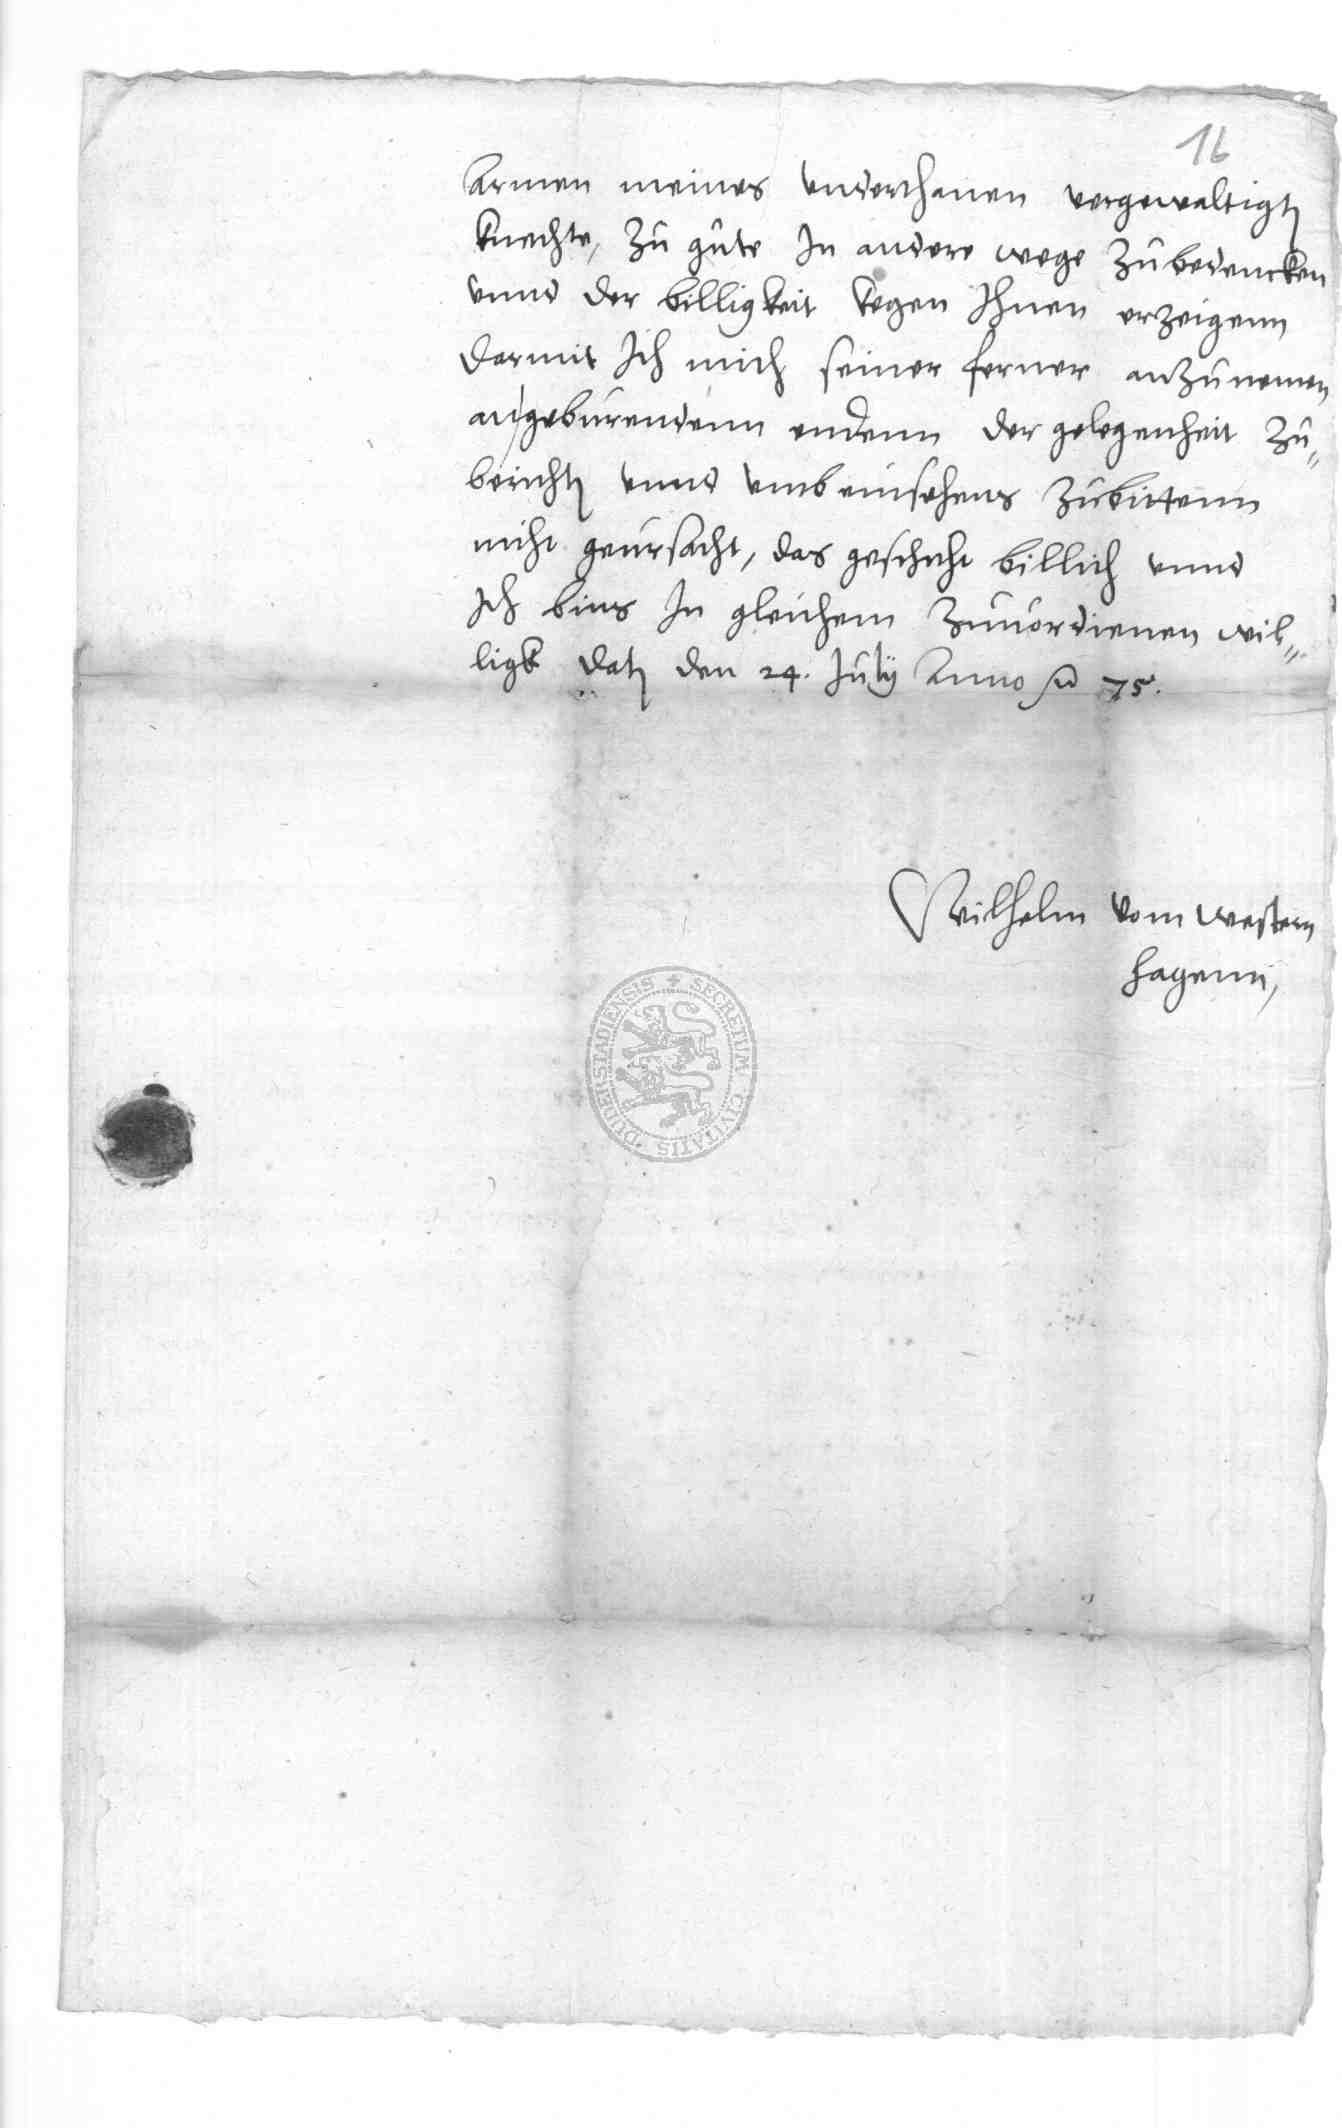 16
Armen meines underthanen vergewaltigt
knechte, zu gute In andere wege zubedencken
unnd der billigkeit kegen Ihnen erzeigenn
darmit Ich mich seiner ferner anzunemen
an geburendenn endenn der gelegenheit zu„
bericht unnd umb einsehens zubittenn
nicht geursacht, das geschicht billich unnd
Ich bins In gleichem zuuordienen wil„
ligk dat den 24. July Anno 75.
Wilhelm vom western
hagenn,
SECRETUM CIVITATIS DUDERSTADIENSIS